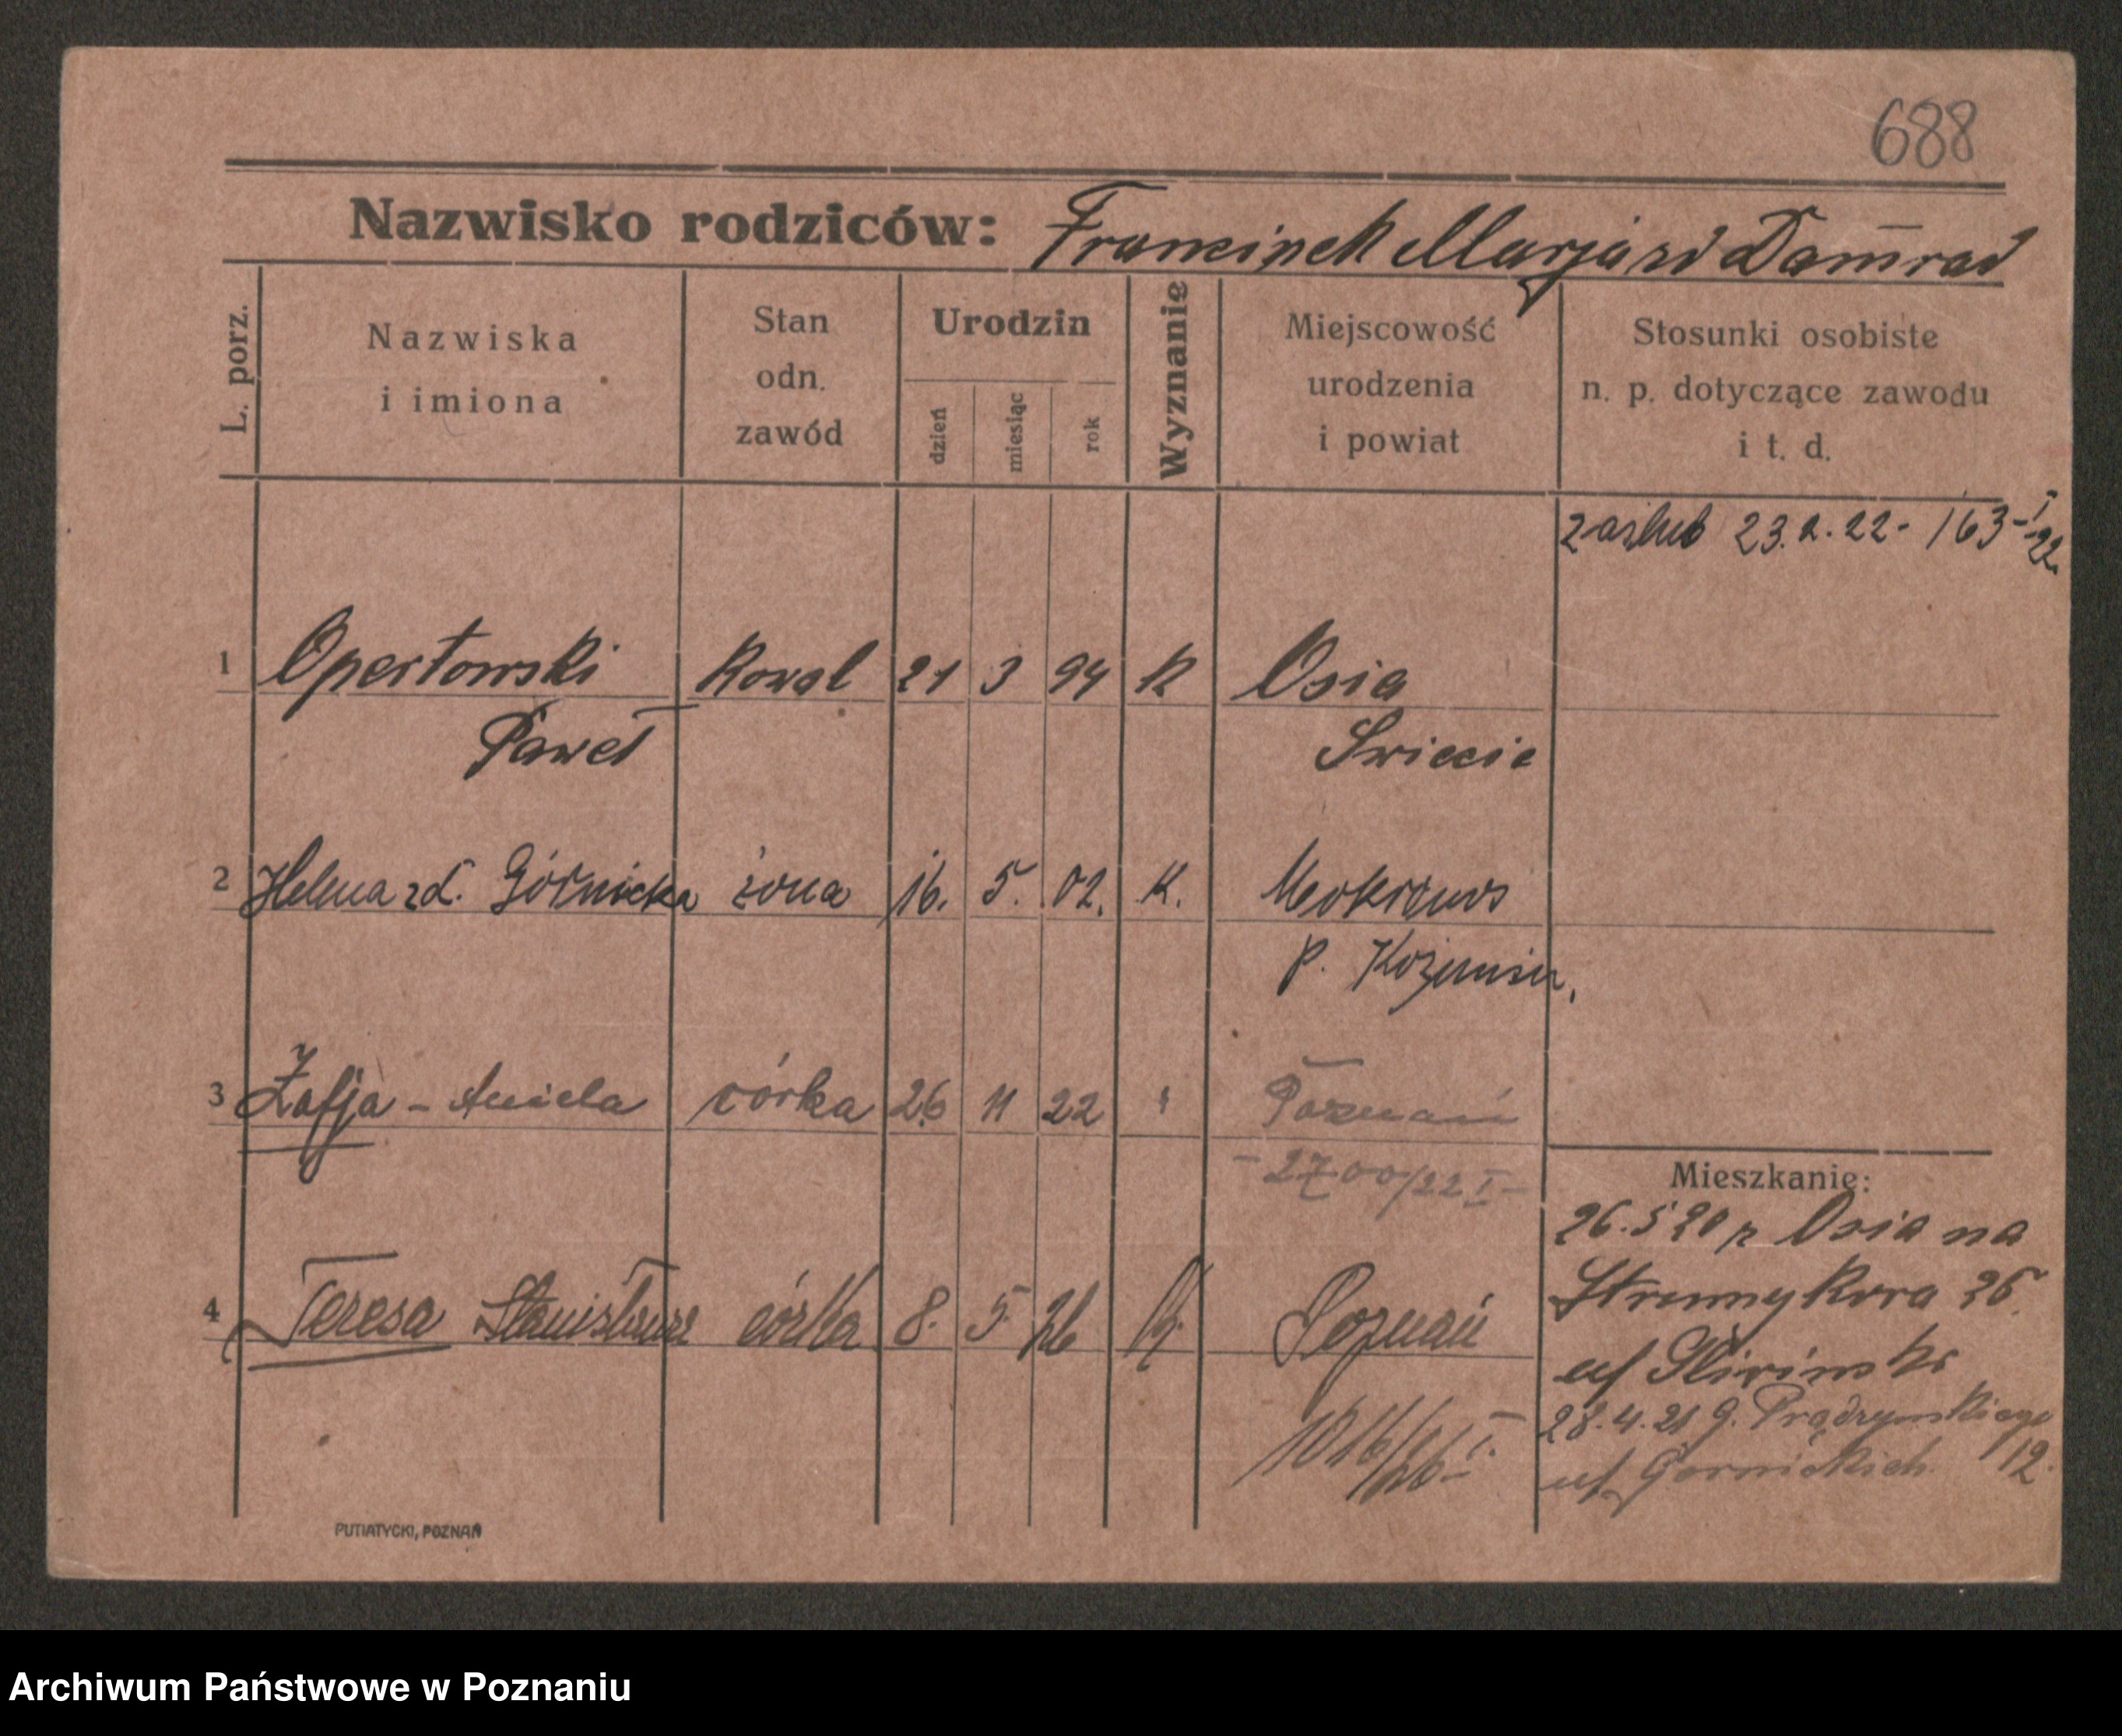 688
Nazwisko rodziców: Francinek Marja zd Damrad
L. porz.
Nazwiska i imiona
Stan odn. zawód
Urodzin
dzień
miesiąc
rok
Wyznanie
Miejscowość urodzenia i powiat
Stosunki osobiste n. p. dotyczące zawodu i t. d.
zaślub 23.2.22 - 163-I-22
1 Opertowski Kowal 21 3 94 K Osia
Paweł Swiecie
2 Helena zd. Górnicka żona 16. 5. 02. K.
p. Koźmin.
3 Zofja - Aniela córka 26 11 22 Poznań
- 2700/22 I -
Mieszkanie:
26.5 20 z Osia na
4 Teresa Stanisława córka 8. 5. 26 K. Poznań
Strumykowa 26.
uf Śliwinski
1016/26 - I.
28.4.21 G. Prądzynskiego 12.
uf Gornickich
PUTIATYCKI, POZNAŃ
Archiwum Państwowe w Poznaniu